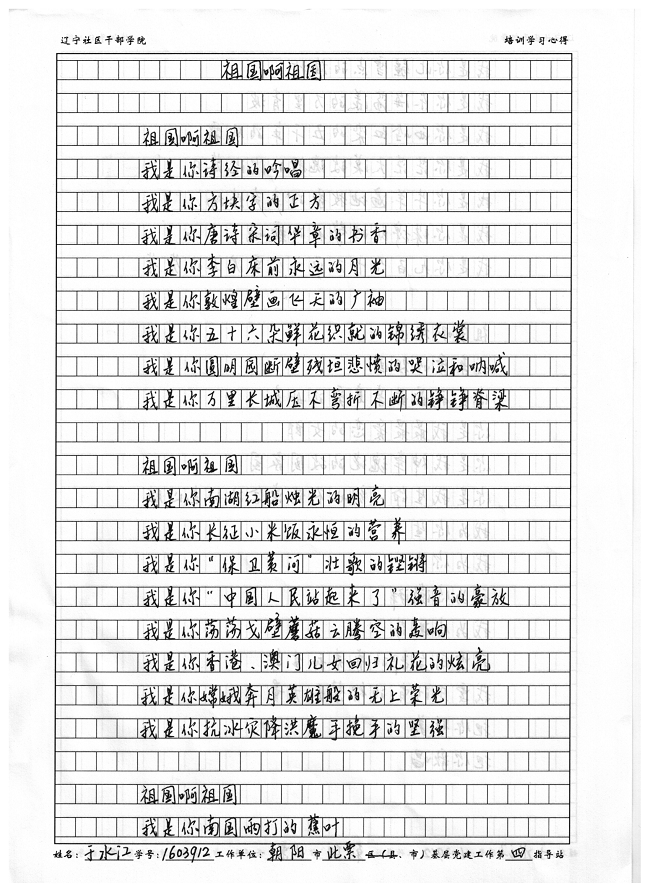 辽宁社区干部学院 培训学习心得
祖国啊祖国
祖国啊祖国
我是你诗经的吟唱
我是你方块字的正方
我是你唐诗宋词华章的书香
我是你李白床前永远的月光
我是你敦煌壁画飞天的广袖
我是你五十六朵鲜花织就的锦绣衣裳
我是你圆明园断壁残垣悲愤的哭泣和呐喊
我是你万里长城压不弯折不断的铮铮脊梁
祖国啊祖国
我是你南湖红船烛光的明亮
我是你长征小米饭永恒的营养
我是你“保卫黄河”壮歌的铿锵
我是你“中国人民站起来了”强音的豪放
我是你荡荡戈壁蘑菇云腾空的轰响
我是你香港、澳门儿女回归礼花的炫亮
我是你嫦娥奔月英雄般的无上荣光
我是你抗冰灾降洪魔手挽手的坚强
祖国啊祖国
我是你南国雨打的蕉叶
姓名：于水江 学号：1603912 工作单位：朝阳市北票区（县、市）基层党建工作第四指导站